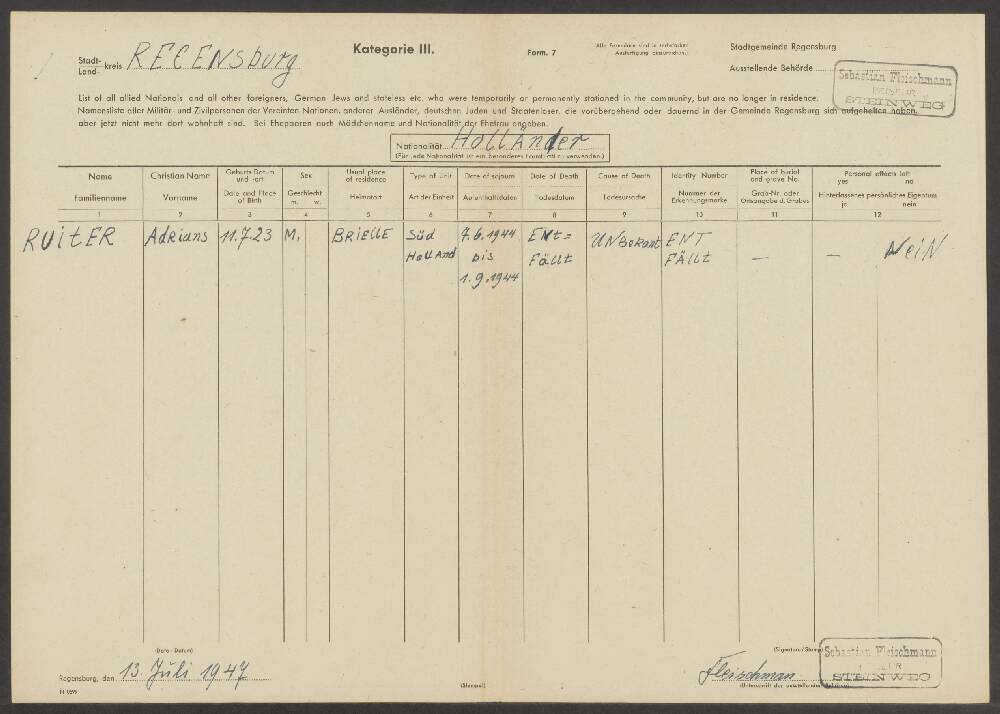 Stadt-
Land-
kreis REGENSburg
Kategorie III.
Form. 7
Alle Formulare sind in sechsfacher
Ausfertigung einzureichen.)
Stadtgemeinde Regensburg
Ausstellende Behörde
Sebastian Fleischmann
STEINWEG
List of all allied Nationals and all other foreigners, German Jews and stateless etc. who were temporarily or permanently stationed in the community, but are no longer in residence.
Namensliste aller Militär- und Zivilpersonen der Vereinten Nationen, anderer Ausländer, deutschen Juden und Staatenloser, die vorübergehend oder dauernd in der Gemeinde Regensburg sich aufgehalten haben,
aber jetzt nicht mehr dort wohnhaft sind. Bei Ehepaaren auch Mädchenname und Nationalität der Ehefrau angeben.
Nationalität HollÄnder
(Für jede Nationalität ist ein besonderes Formblatt zu verwenden.)
Name
Familienname
1
Christian Name
Vorname
2
Geburts-Datum
und -ort
Date and Place
of Birth
3
Sex
Geschlecht
m. w.
4
Usual place
of residence
Heimatort
5
Type of Unit
Art der Einheit
6
Date of sojourn
Aufenthaltsdaten
7
Date of Death
Todesdatum
8
Cause of Death
Todesursache
9
Identity Number
Nummer der
Erkennungsmarke
10
Place of burial
and grave No.
Grab-Nr. oder
Ortsangabe d. Grabes
11
Personal effects left
yes no
Hinterlassenes persönliches Eigentum
ja nein
12
RUitER Adrians 11.7.23 M. BRiELLE Süd 7.6.1944 ENt= UNBekant ENT
HollAnd bis FÄllt FÄllt — — NeiN
1.9.1944
(Date - Datum)
Regensburg, den 13. Juli 1947
H 0599
(Stempel)
(Signature/Stamp)
Fleischman
Sebastian Fleischmann
STEINWEG